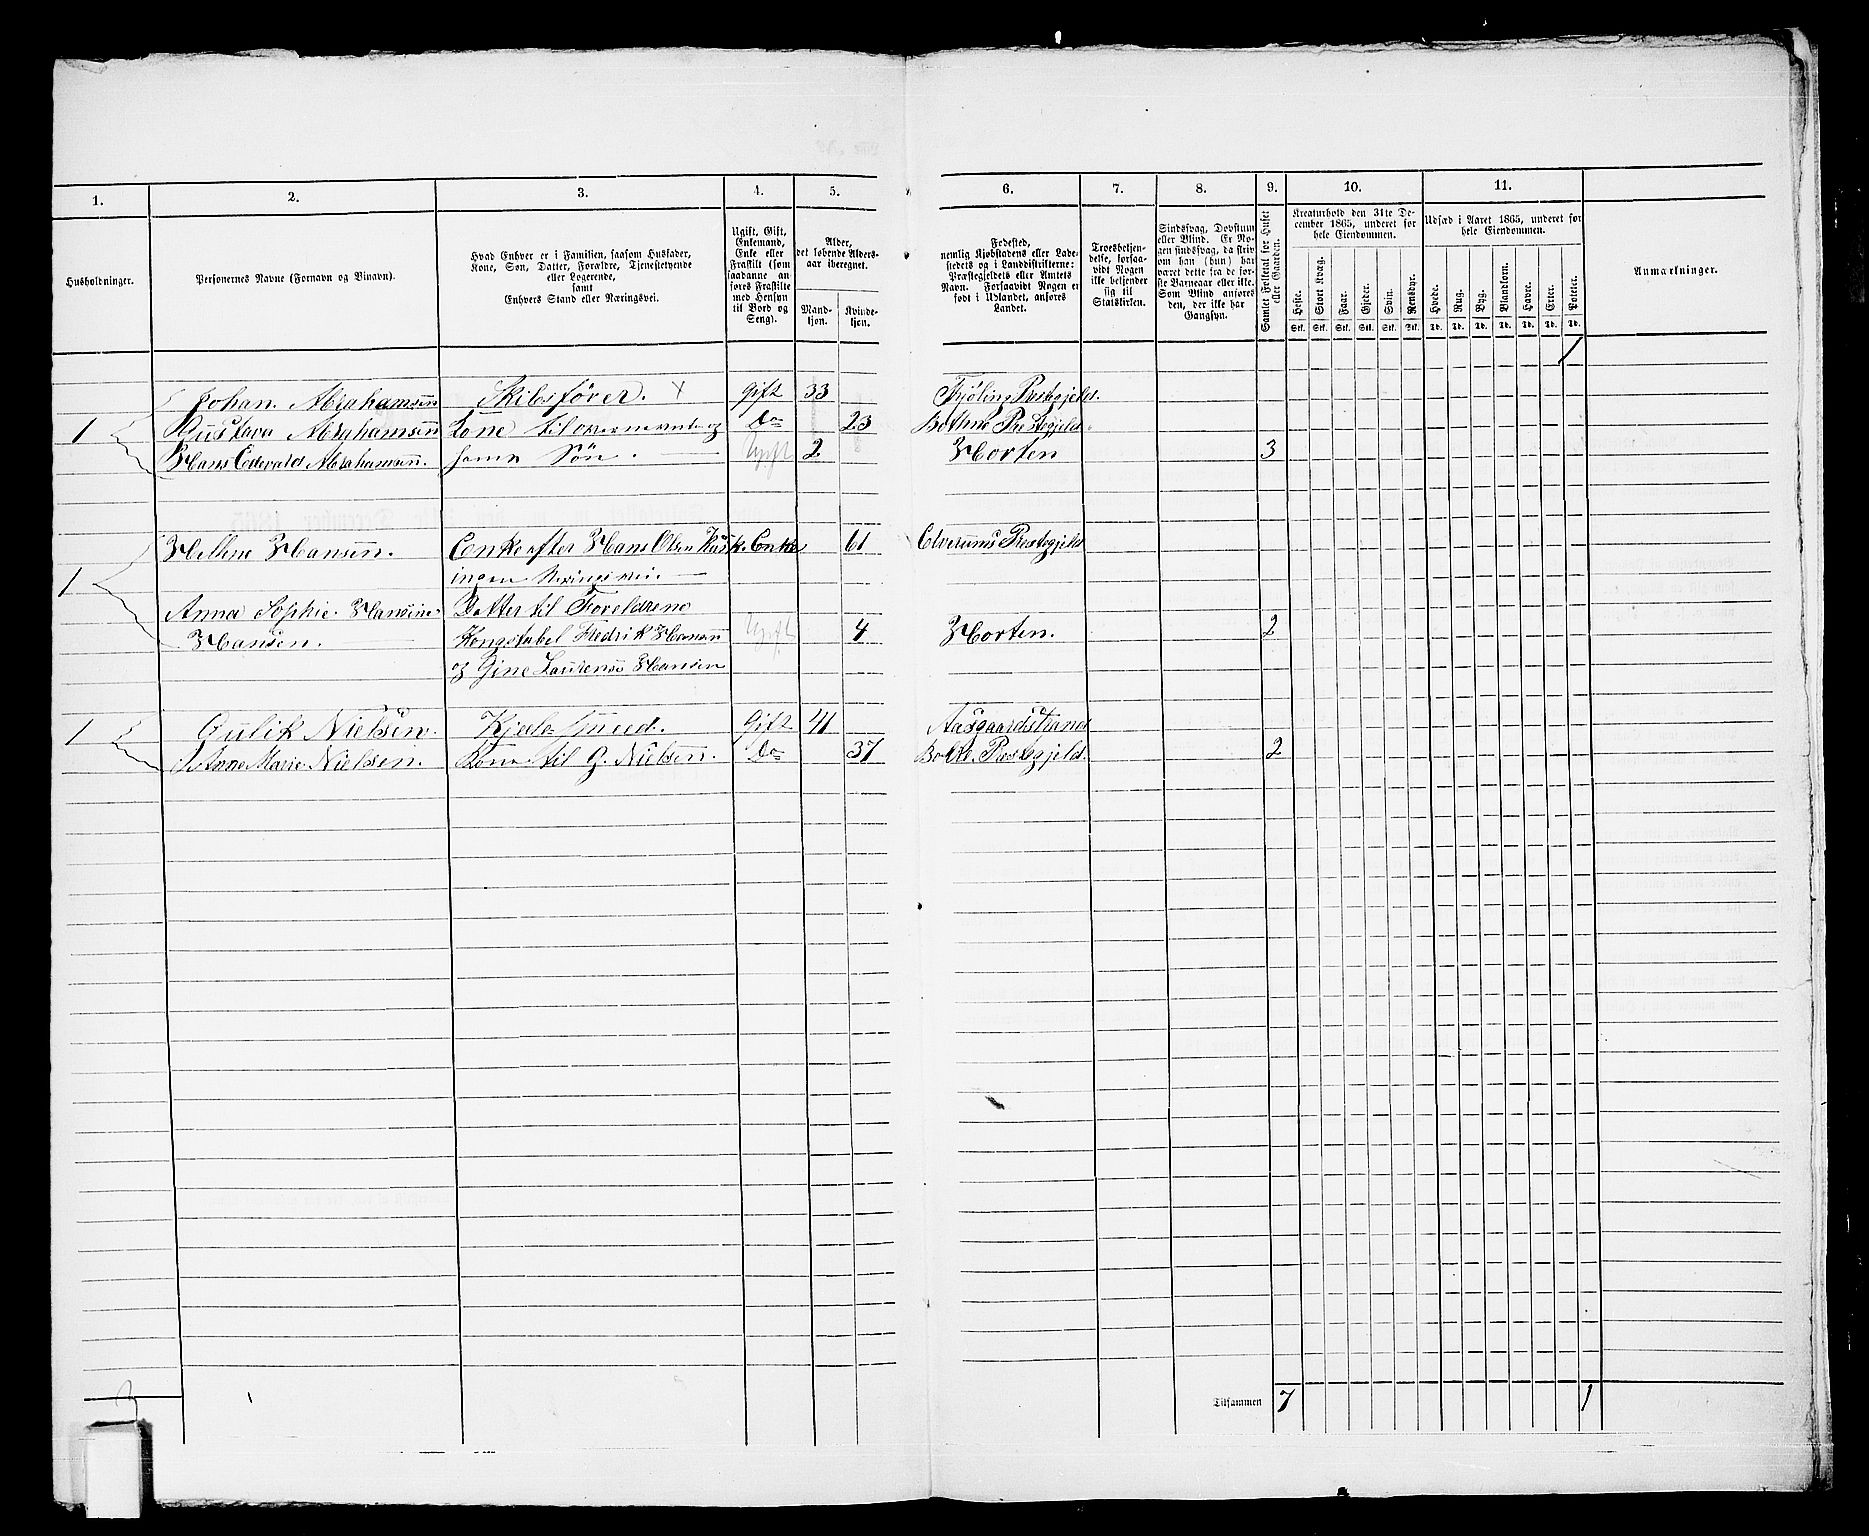 1. 2. 3. 4. 5. 6. 7. 8. 9. 10. 11.
Husholdninger.
Personernes Navne (Fornavn og Vinavn).
Hvad Enhver er i Familien, saasom Husfader,
Kone, Søn, Datter, Forældre, Tjenestetyende
eller Logerende,
samt
Enhvers Stand eller Næringsvei.
Ugift, Gift,
Enkemand,
Enke eller
Fraskilt (som
saadanne an-
føres Fraskilte
med Hensyn
til Bord og
Seng).
Alder,
det løbende Alders-
aar iberegnet.
Mand-
kjøn.
Kvinde-
kjøn.
Fødested,
nemlig Kjøbstadens eller Lade-
stedets og i Landdistrikterne:
Præstegjeldets eller Amtets
Navn. Forsaavidt Nogen er
født i Udlandet, anføres
Landet.
Troesbekjen-
delse, forsaa-
vidt Nogen
ikke bekjender
sig til
Statskirken.
Sindssvag, Døvstum
eller Blind. Er No-
gen sindssvag, da skriv
om han (hun) har
været dette fra de før-
ste Barneaar eller ikke.
Som Blind anføres
den, der ikke har
Gangsyn.
Samlet Folketal for Huset
eller Gaarden.
Kreaturhold den 31te De-
cember 1865, underet for
hele Eiendommen.
Heste. Stort Kvæg. Faar. Gjeder. Svin. Rensdyr.
Stk. Stk. Stk. Stk. Stk. Stk.
Udsæd i Aaret 1865, underet for
hele Eiendommen.
Hvede. Rug. Byg. Blandkorn. Havre. Erter. Poteter.
Td. Td. Td. Td. Td. Td. Td.
Anmærkninger.
1
Johan Abrahamsen Skibsfører. x Gift 33 Prestegjeld.
1 Gustava Abrahamsen Kone til overnevnte og Do 23 Prestegjeld
Hans Edevald Abrahamsen. hans Søn. Ugift 2 Horten 3
Hellene Hansen. Enke efter Hans Olsen Enke 61 Elverums Prestegjeld
1 ingen Næringsvei.
Anna Sophie Hansine Datter til Foreldrene
Hansen. Fredrik Hansen Ugift 4 Horten. 2
og Gine Laurense Hansen
1 Gulik Nielsen. Kjedelsmed. Gift 41 Aasgaardstrand
Anne Marie Nielsen. Kone til G. Nielsen. Do 37 Prestegjeld. 2
Tilsammen 7 1
3